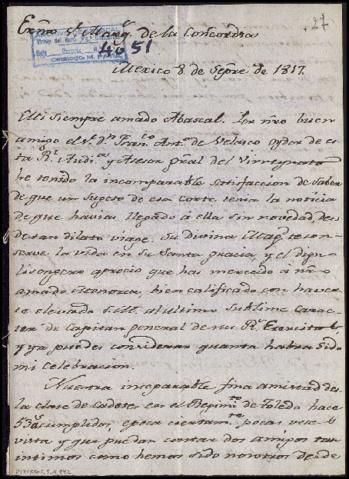 Exmo Sr Marqs de la Concordia
27
4651
Mexico 8 de Sepre de 1817.
Mi siempre amado Abascal. Por nro buen
amigo el Sr Dn Franco Anto de Velasco oydor de es
ta Rl Audia y Asesor gral del Virreynato
he tenido la incomparable satisfaccion de saber
de que un sugeto de esa corte tenia la noticia
de que havias llegado á ella sin novedad des
de tan dilata viage. Su divina Magd te con
serve la vida en su santa gracia y el dig
no aprecio que has mercado á nro
amado Monarca bien calificado con haver
te elevado al ultimo sublime carac
ter de Capitan general de sus Rs Exercitos,
y ya puedes considerar quanta habra sido
mi celebracion.
Nuestra inseparable fina amistad des
la clase de Cadetes en el Regimto de Toledo hace
53 as cumplidos, epoca ciertamte pocas veces
vista y que puedan contar dos amigos tan
intimos como hemos sido nosotros desde